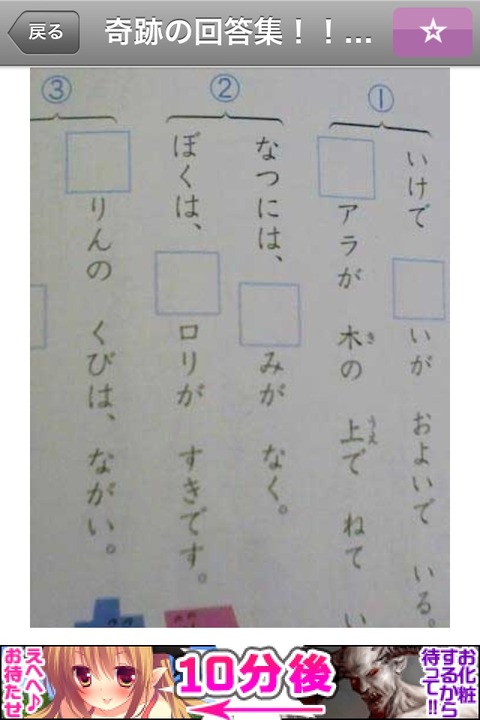 戻る
奇跡の回答集！！...
☆
①
いけで□いが およいで いる。
□アラが 木の 上で ねて い
き
うえ
②
なつには、□みが なく。
ぼくは、□ロリが すきです。
③
□りんの くびは、ながい。
えへへ♪
お待たせ
10分後
お化粧
するから
待って!!